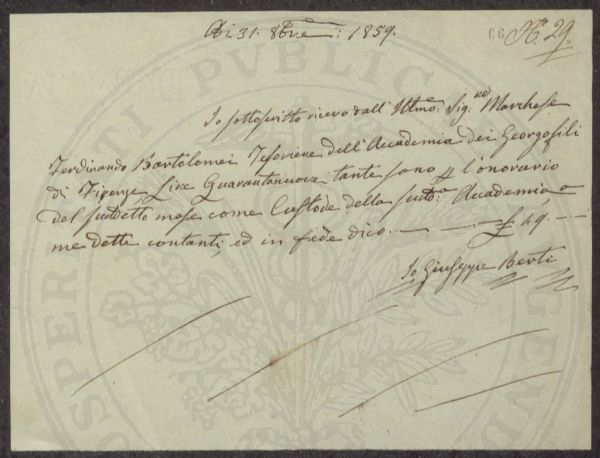 Adi 31. 8bre: 1859.
CC N.º 29
Io sottoscritto ricevo dall' Illmo: Sig.re Marchese
Ferdinando Bartolomei Tesoriere dell'Accademia dei Georgofili
di Firenze Lire Quarantanuove tante sono p l'onorario
del suddetto mese come Custode della sudd.a Accademia, a
me dette contanti, ed in fede dico. — £ 49. —
Io Giuseppe Berti
PROSPERITATI PUBLICAE AUGENDAE